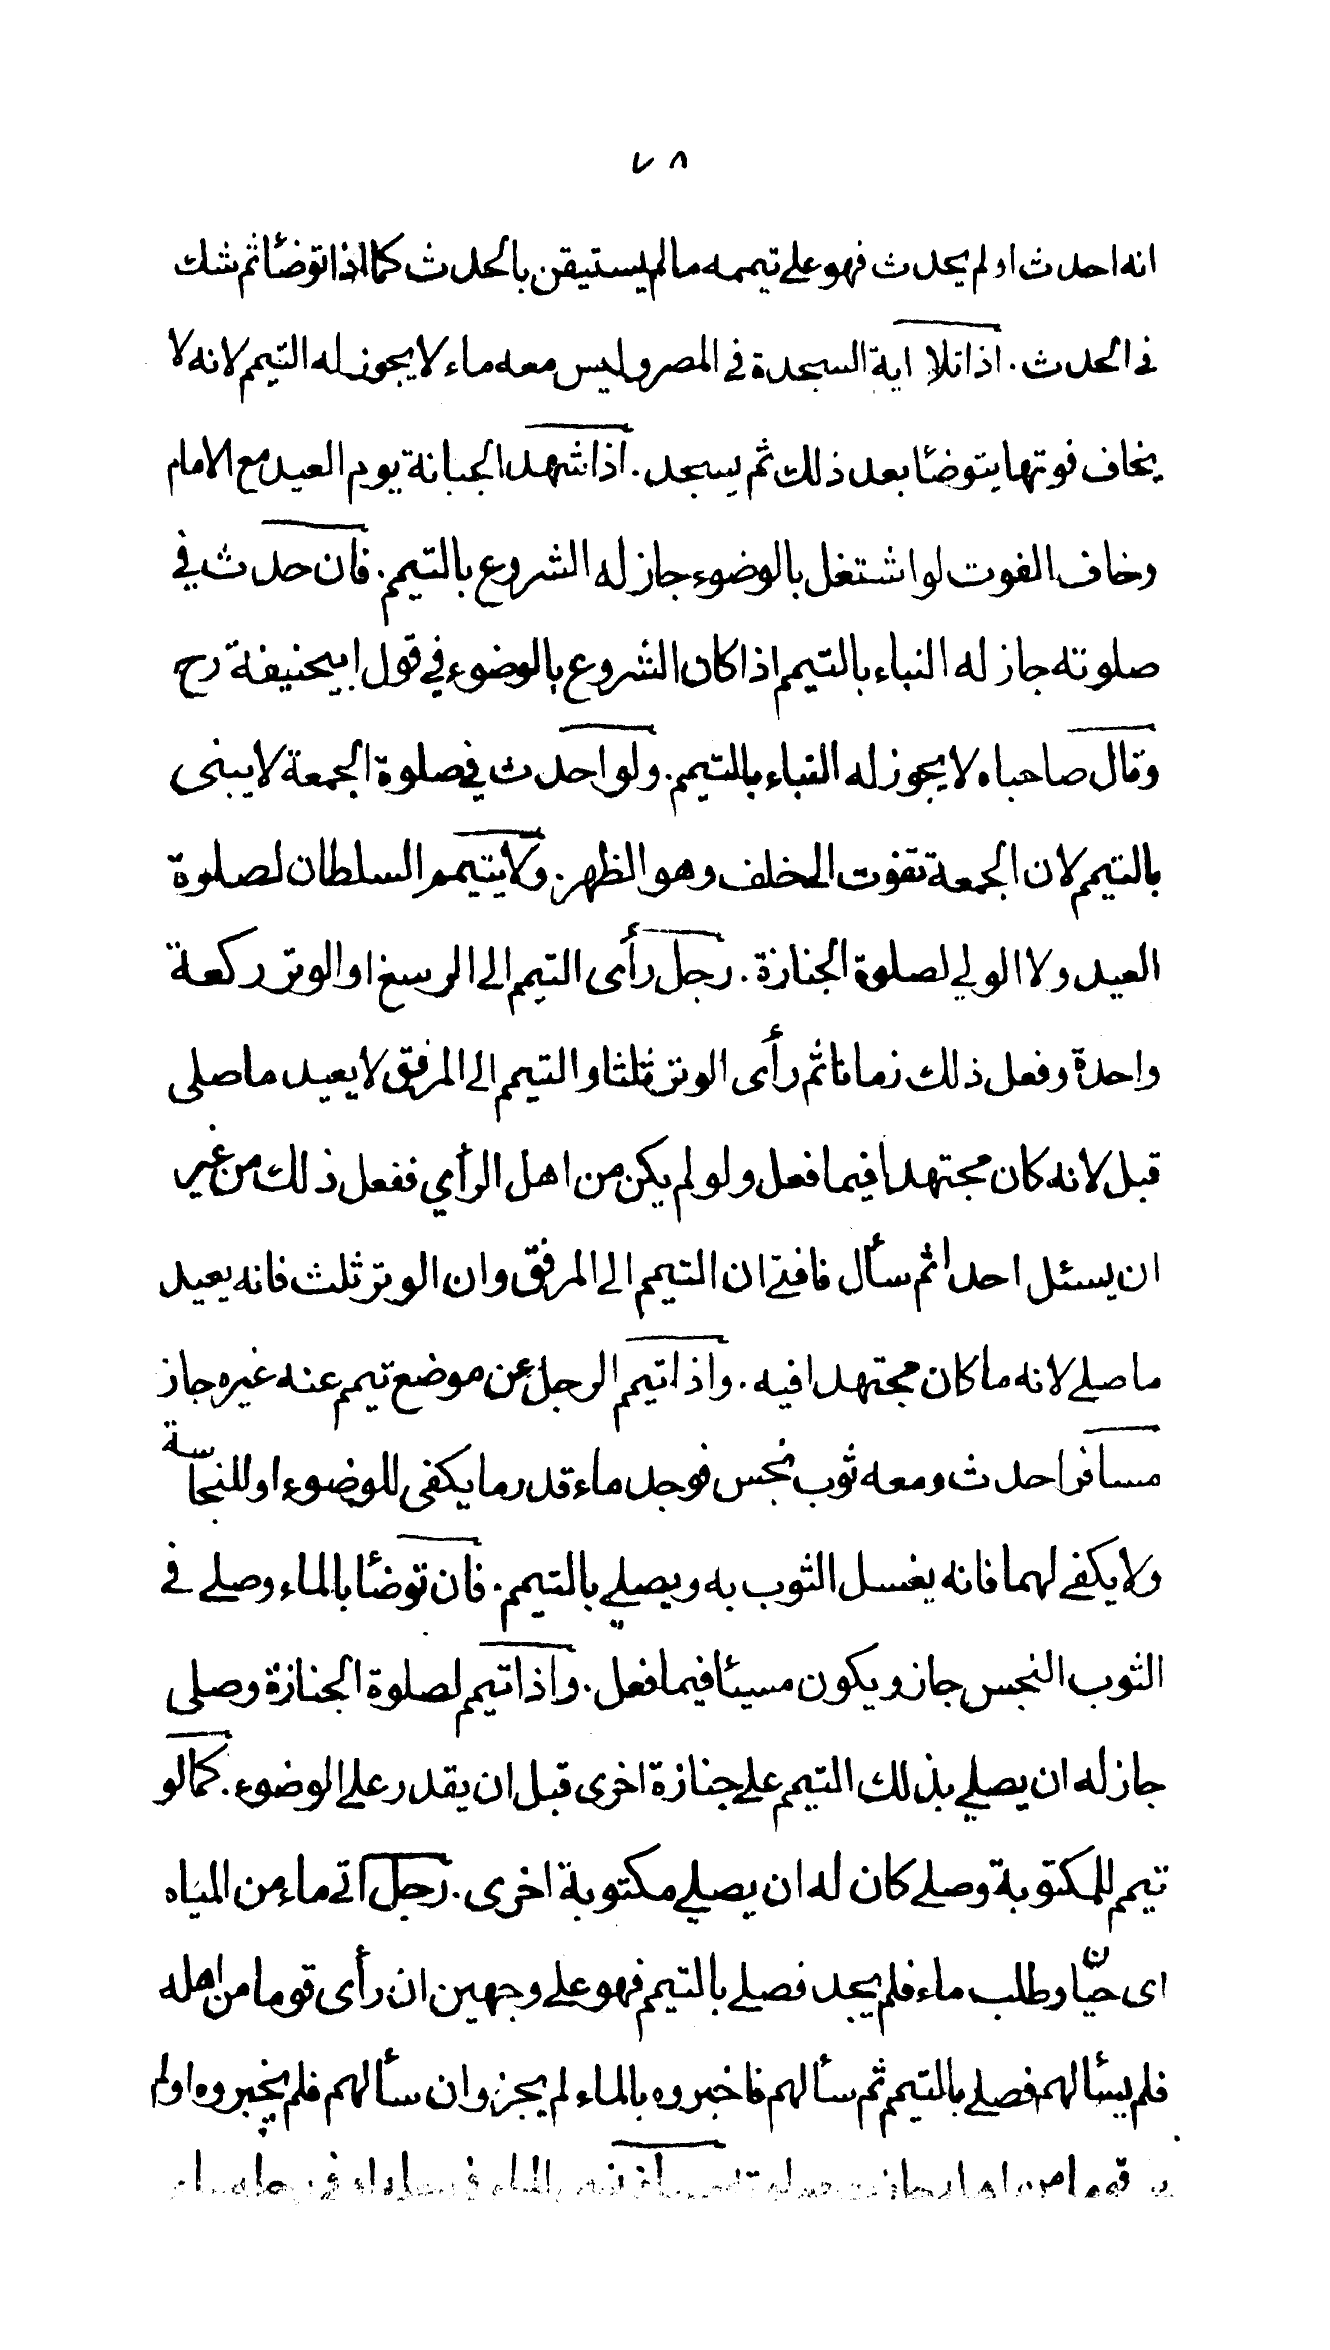 ٧٨
انه احدث او لم يحدث فهو على تيممه ما لم يستيقن بالحدث كما اذا توضأ ثم شك
في الحدث . اذا تلا اية السجدة في المصر وليس معه ماء لا يجوز له التيمم لانه لا
يخاف فوتها يتوضأ بعد ذلك ثم يسجد . اذا شهد الجبانة يوم العيد مع الامام
وخاف الفوت لو اشتغل بالوضوء جاز له الشروع بالتيمم . فان حدث في
صلوته جاز له النباء بالتيمم اذا كان الشروع بالوضوء في قول ابيحنيفة رح
وقال صاحباه لا يجوز له النباء بالتيمم . ولو احدث في صلوة الجمعة لا يبنى
بالتيمم لان الجمعة تفوت الى خلف وهو الظهر . ولا يتيمم السلطان لصلوة
العيد ولا الولي لصلوة الجنازة . رجل رأى التيمم الى الرسغ او الوتر ركعة
واحدة وفعل ذلك زمانا ثم رأى الوتر ثلثا والتيمم الى المرفق لا يعيد ما صلى
قبل لانه كان مجتهدا فيما فعل ولو لم يكن من اهل الرأي ففعل ذلك من غير
ان يسئل احدا ثم سأل فافتى ان التيمم الى المرفق وان الوتر ثلث فانه يعيد
ما صلى لانه ما كان مجتهدا فيه . واذا تيمم الرجل عن موضع تيمم عنه غيره جاز
مسافر احدث ومعه ثوب نجس فوجد ماء قدر ما يكفى للوضوء او للنجاسة
ولا يكفى لهما فانه يغسل الثوب به ويصلي بالتيمم . فان توضأ بالماء وصلى في
الثوب النجس جاز ويكون مسيئا فيما فعل . واذا تيمم لصلوة الجنازة وصلى
جاز له ان يصلي بذلك التيمم على جنازة اخرى قبل ان يقدر على الوضوء . كما لو
تيمم للمكتوبة وصلى كان له ان يصلي مكتوبة اخرى . رجل اتى ماء من المياه
اى حيّا وطلب ماء فلم يجد فصلى بالتيمم فهو على وجهين ان رأى قوما من اهله
فلم يسألهم فصلى بالتيمم ثم سألهم فاخبروه بالماء لم يجز وان سألهم فلم يخبروه او لم
قوما من اهله جازت صلوته